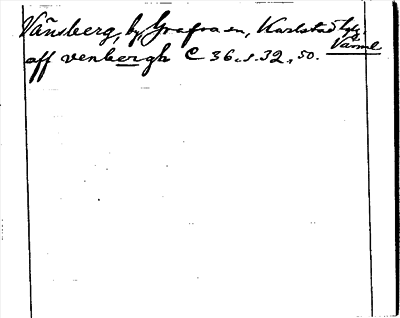 Vånsberg, by, Grafva sn, Karlstad hgtg. Värml
aff venbergh C 36. s. 32, 50.